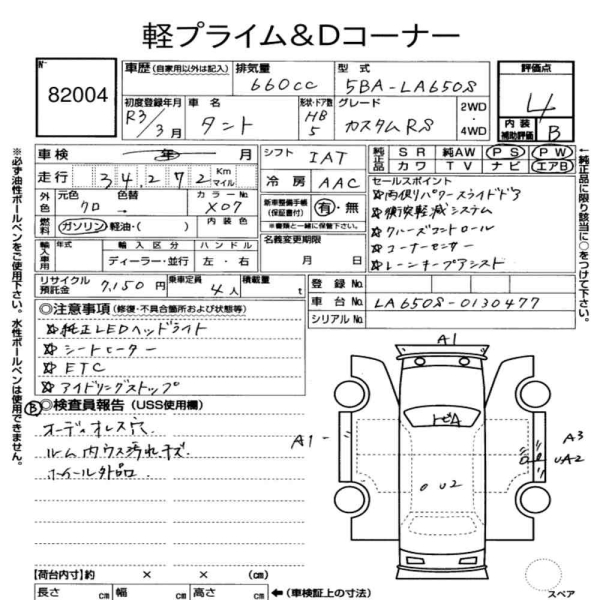 軽プライム&Dコーナー
No 82004
車歴 (自家用以外は記入) 排気量 660cc 型式 5BA-LA650S
初度登録年月 R3/3月 車名 タント 形状・ドア数 HB 5 グレード カスタムRS 2WD・4WD
評価点 4
内装補助評価 B
車検 年 月 シフト IAT
走行 34,272 Km マイル 冷房 AAC
純正品 SR 純AW PS PW
カワ TV ナビ エアB
外色 元色 クロ 色替 カラーNo X07
燃料 ガソリン・軽油・( ) 内装色
新車整備手帳(保証書付) 有・無
※書類と一緒に保管下さい。
セールスポイント
☆両側パワースライドドア
☆衝突軽減システム
☆クルーズコントロール
☆コーナーセンサー
☆レーンキープアシスト
輸入車用 年式 輸入区分 ディーラー・並行 ハンドル 左・右
名義変更期限 月 日
リサイクル預託金 7,150円 乗車定員 4人 積載量 t
登録No.
車台No. LA650S-0130477
シリアルNo.
◎注意事項 (修復・不具合箇所および状態等)
☆純正LEDヘッドライト
☆シートヒーター
☆ETC
☆アイドリングストップ
B ◎検査員報告 (USS使用欄)
オーディオレス穴
ルーム内ウス汚れキズ
ホイール外品
A1
トビA
A1
A3
UA2
U2
【荷台内寸】約 × × (cm)
長さ cm 幅 cm 高さ cm ←(車検証上の寸法)
スペア
※必ず油性ボールペンをご使用下さい。水性ボールペンは使用できません。
←純正品に限り該当に○をつけて下さい。